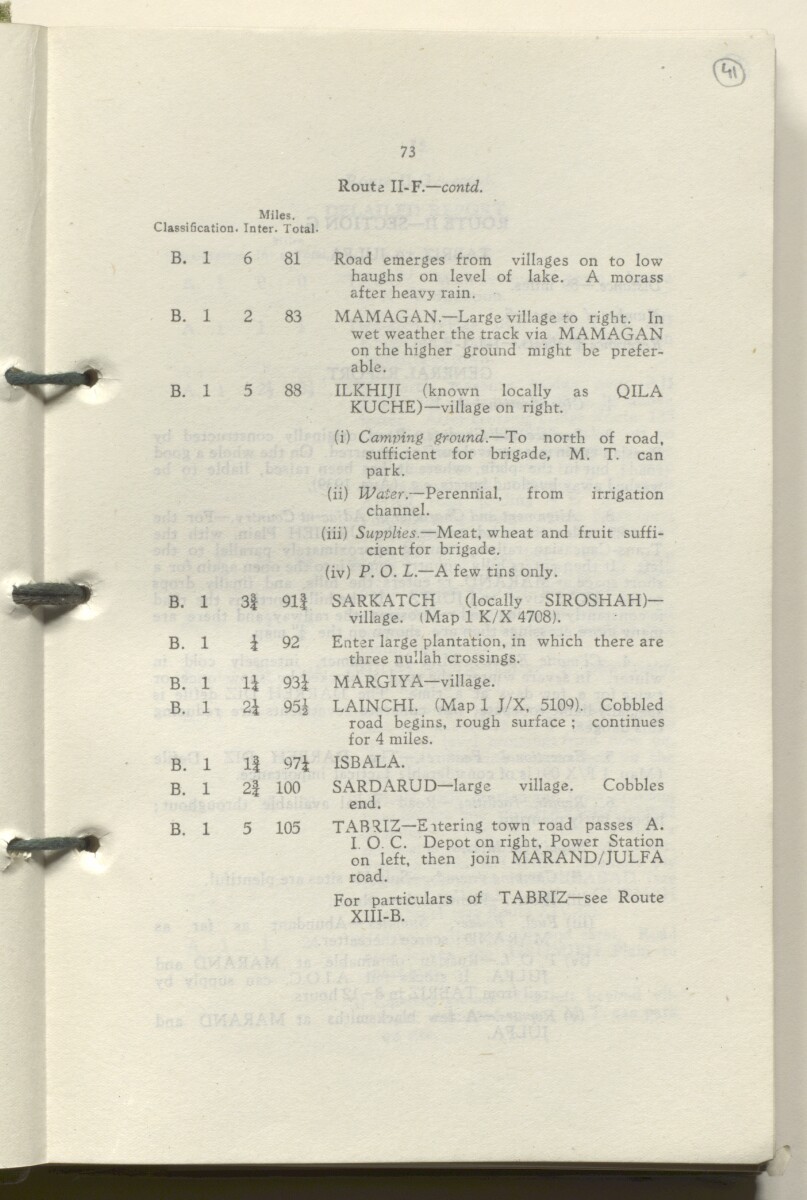 41
73
Route II-F.—contd.
Miles.
Classification. Inter. Total.
B. 1 6 81 Road emerges from villages on to low
haughs on level of lake. A morass
after heavy rain.
B. 1 2 83 MAMAGAN.—Large village to right. In
wet weather the track via MAMAGAN
on the higher ground might be prefer-
able.
B. 1 5 88 ILKHIJI (known locally as QILA
KUCHE)—village on right.
(i) Camping ground.—To north of road,
sufficient for brigade, M. T. can
park.
(ii) Water.—Perennial, from irrigation
channel.
(iii) Supplies.—Meat, wheat and fruit suffi-
cient for brigade.
(iv) P. O. L.—A few tins only.
B. 1 3¾ 91¾ SARKATCH (locally SIROSHAH)—
village. (Map 1 K/X 4708).
B. 1 ¼ 92 Enter large plantation, in which there are
three nullah crossings.
B. 1 1¼ 93¼ MARGIYA—village.
B. 1 2¼ 95½ LAINCHI. (Map 1 J/X, 5109). Cobbled
road begins, rough surface; continues
for 4 miles.
B. 1 1¾ 97¼ ISBALA.
B. 1 2¾ 100 SARDARUD—large village. Cobbles
end.
B. 1 5 105 TABRIZ—Entering town road passes A.
I. O. C. Depot on right, Power Station
on left, then join MARAND/JULFA
road.
For particulars of TABRIZ—see Route
XIII-B.